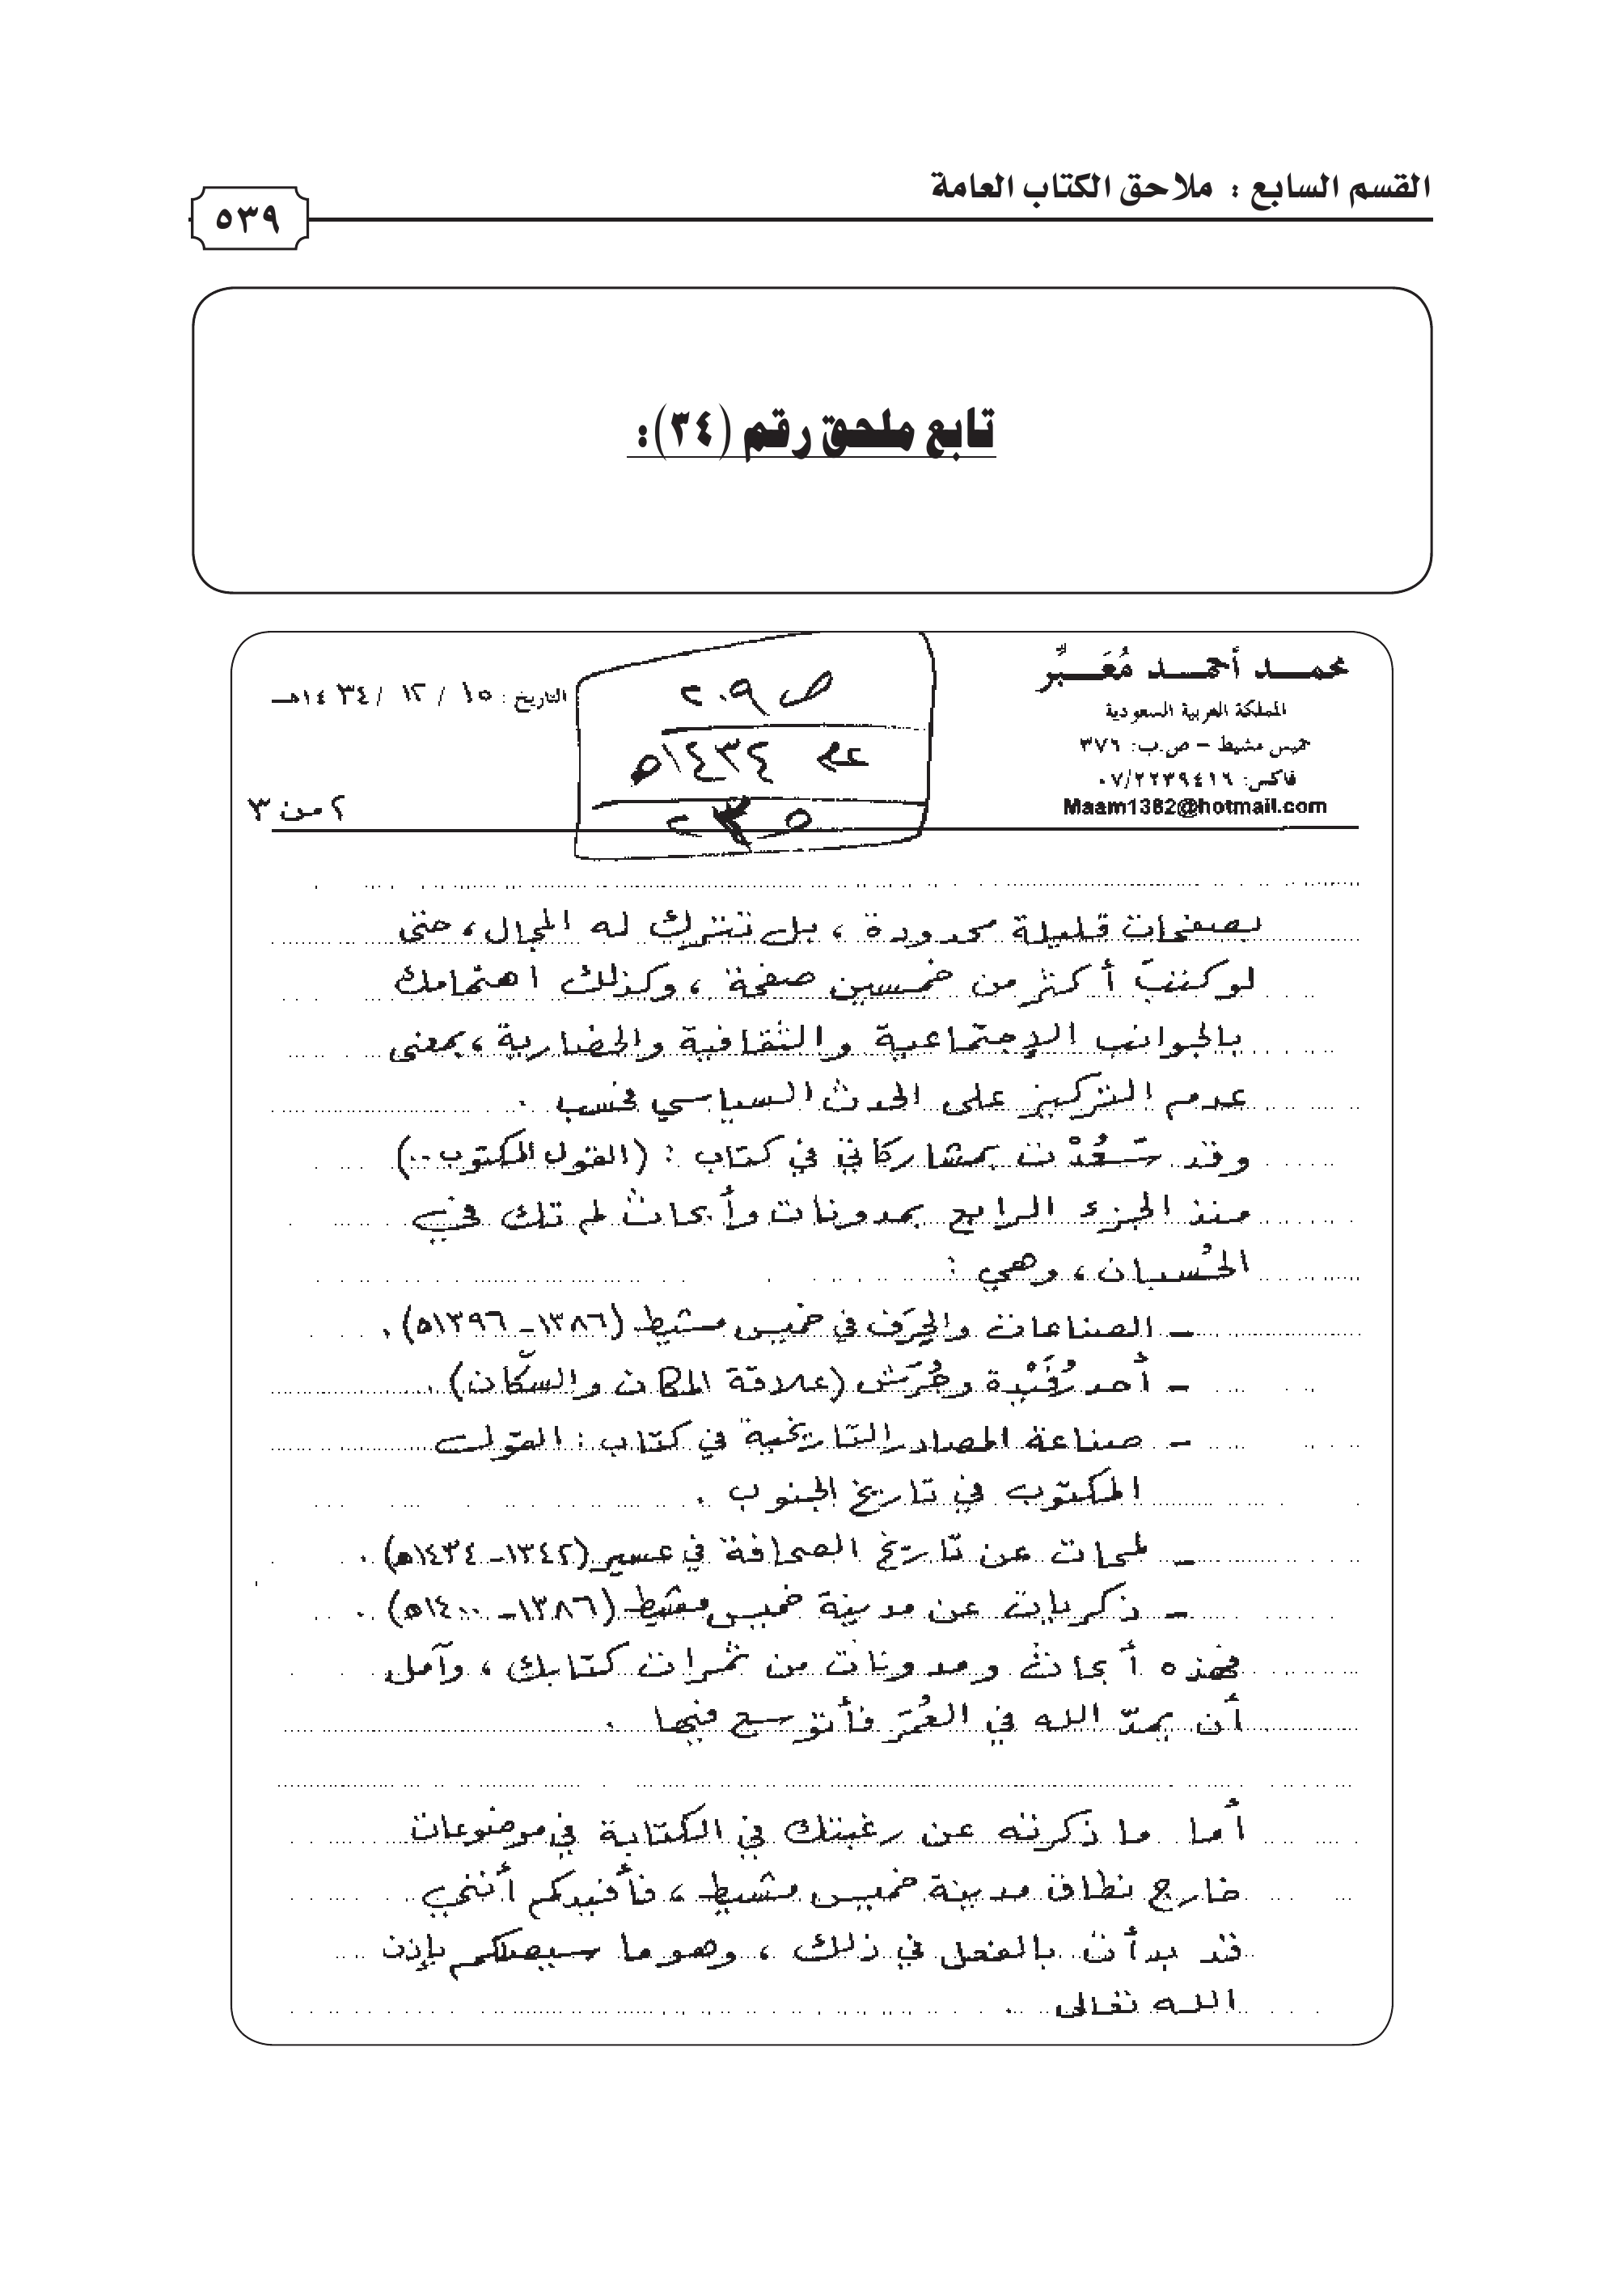 القسم السابع : ملاحق الكتاب العامة
٥٣٩
تابع ملحق رقم (٣٤):
محمد أحمد مُعَبِّر
المملكة العربية السعودية
خميس مشيط – ص.ب: ٣٧٦
فاكس: ٠٧/٢٢٣٩٤١٦
Maam1382@hotmail.com
ص ٢٠٩
١٤٣٤هـ
التاريخ : ١٥ / ١٢ / ١٤٣٤هـ
٢ من ٣
بصفحات قليلة محدودة ، بل تترك له المجال ، حتى
لو كتبتَ أكثر من خمسين صفحة ، وكذلك اهتمامك
بالجوانب الإجتماعية والثقافية والحضارية ، بمعنى
عدم التركيز على الحدث السياسي فحسب .
وقد سَعُدْت بمشاركاتي في كتاب : (القول المكتوب ..)
منذ الجزء الرابع بمدونات وأبحاث لم تك في
الحُسبان ، وهي :
– الصناعات والحِرَف في خميس مشيط (١٣٨٦ – ١٣٩٦هـ) .
– أُحد رُفَيْدة وجُرَش (علاقة المكان والسكّان) .
– صناعة المصادر التاريخية في كتاب : القول
المكتوب في تاريخ الجنوب .
– لمحات عن تاريخ الصحافة في عسير (١٣٤٢ – ١٤٣٤هـ) .
– ذكريات عن مدينة خميس مشيط (١٣٨٦ – ١٤٠٠هـ) .
فهذه أبحاث ومدونات من ثمرات كتابك ، وآمل
أن يمدّ الله في العُمَر فأتوسع فيها .
أما ما ذكرته عن رغبتك في الكتابة في موضوعات
خارج نطاق مدينة خميس مشيط ، فأفيدكم أنني
قد بدأت بالفعل في ذلك ، وهو ما سيصلكم بإذن
الله تعالى .